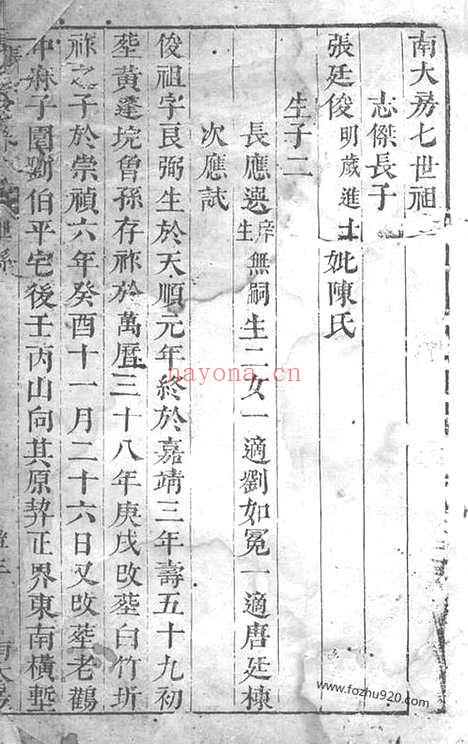 南大房七世祖
志傑長子
張廷俊明歲進士妣陳氏
生子二
長應選庠生無嗣生二女一適劉如冕一適唐廷棟
次應試
俊祖字良弼生於天順元年終於嘉靖三年壽五十九初
塟黃蓬垸曾孫存祚於萬曆三十八年庚戌改塟白竹圻
祚之子於崇禎六年癸酉十一月二十六日又改塟老鸛
中麻子園劉伯平宅後壬丙山向其原契正界東南橫塹
hayona.cn
www.fozhu920.com